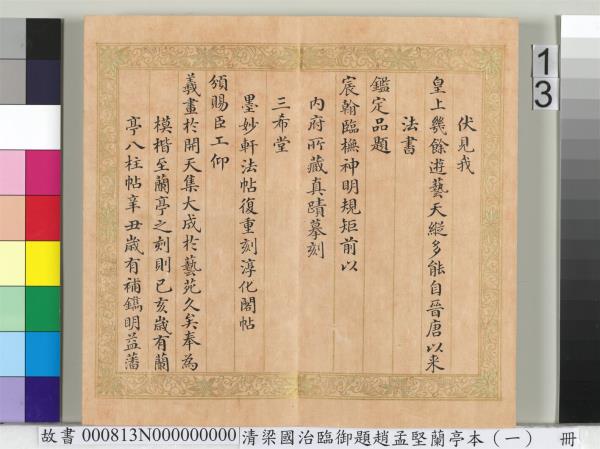 伏見我
皇上幾餘遊藝天縱多能自晉唐以来
法書
鑑定品題
宸翰臨橅神明規矩前以
内府所藏真蹟摹刻
三希堂
墨妙軒法帖復重刻淳化閣帖
頒賜臣工仰
羲畫於開天集大成於藝苑久矣奉為
模楷至蘭亭之刻則已亥歲有蘭
亭八柱帖辛丑歲有補鐫明益藩
13
故書 000813N000000000 清梁國治臨御題趙孟堅蘭亭本（一） 冊